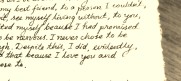 my best friend, to a person I couldn't
not, see myself living without, to you,
ted myself because I had promised
o be nervous. I never chose to be
gh. Despite this, I did, evidently,
d that because I love you and
ose to.